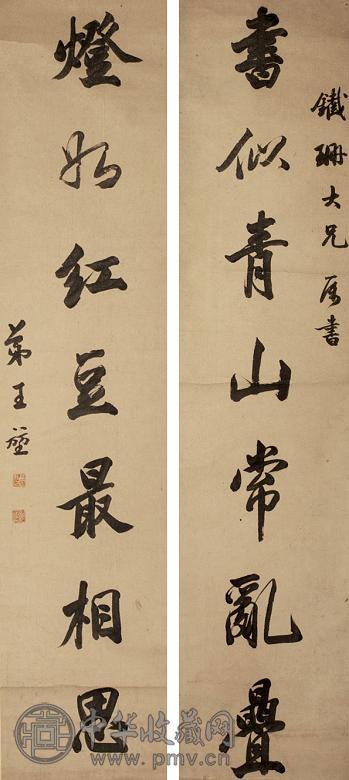 鐵珊大兄属書
書似青山常亂疊
燈如紅豆最相思
弟王
中华收藏网
www.pmv.cn